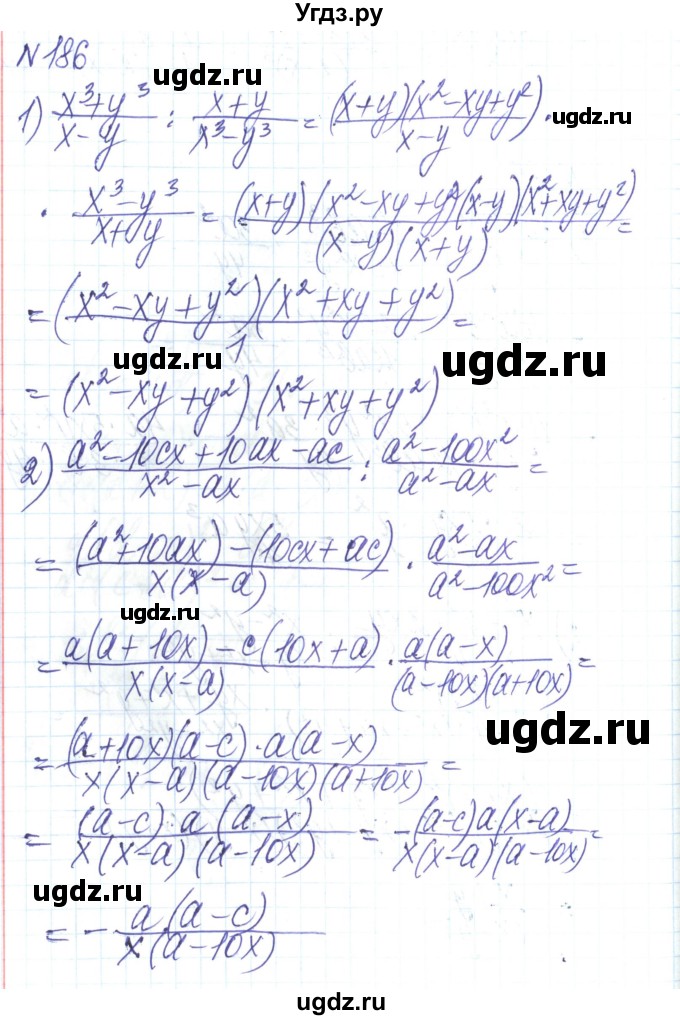 Угдз.ру
№186
ugdz.ru
1) (x³+y³)/(x-y) : (x+y)/(x³-y³) = ((x+y)(x²-xy+y²))/(x-y) ·
ugdz.ru
· (x³-y³)/(x+y) = ((x+y)(x²-xy+y²)(x-y)(x²+xy+y²))/((x-y)(x+y)) =
= ((x²-xy+y²)(x²+xy+y²))/1 =
ugdz.ru
ugdz.ru
= (x²-xy+y²)(x²+xy+y²)
2) (a²-10cx+10ax-ac)/(x²-ax) : (a²-100x²)/(a²-ax) =
ugdz.ru
= ((a²+10ax)-(10cx+ac))/(x(x-a)) · (a²-ax)/(a²-100x²) =
ugdz.ru
= (a(a+10x)-c(10x+a))/(x(x-a)) · (a(a-x))/((a-10x)(a+10x)) =
ugdz.ru
= ((a+10x)(a-c)·a(a-x))/(x(x-a)(a-10x)(a+10x)) =
= ((a-c)·a(a-x))/(x(x-a)(a-10x)) = -((a-c)a(x-a))/(x(x-a)(a-10x)) =
ugdz.ru
= - (a(a-c))/(x(a-10x))
ugdz.ru
ugdz.ru